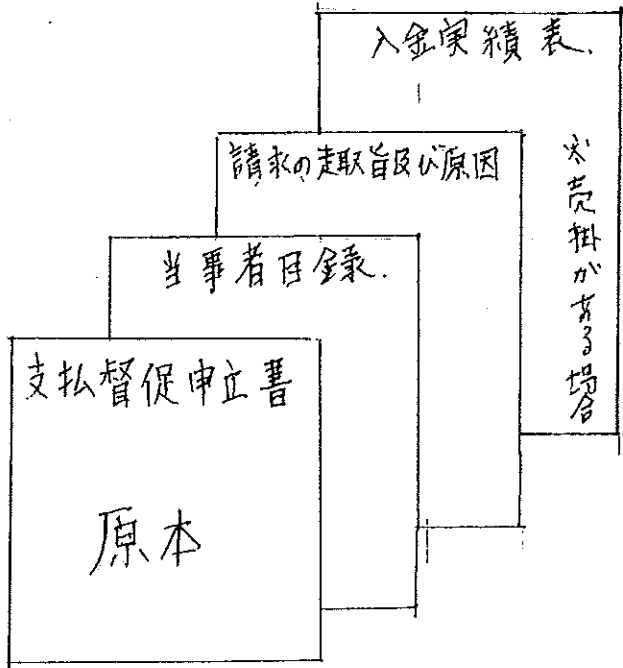 入金実績表.
※売掛がある場合
請求の趣旨及び原因
当事者目録.
支払督促申立書
原本